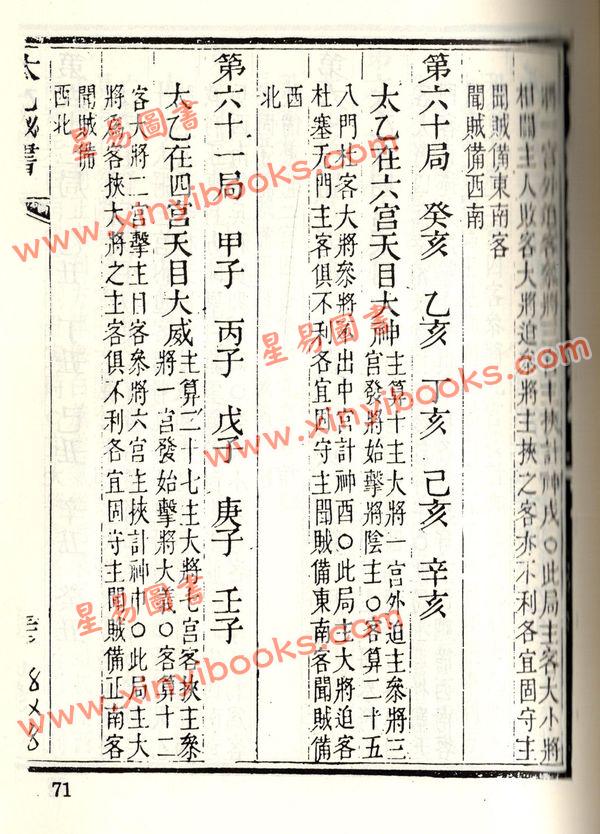 將
宮外迫客參將三
主挾計神戌○此局主客大小將
相關主人敗客大將迫參將主挾之客亦不利各宜固守主
聞賊備東南客
聞賊備西南
第六十局 癸亥 乙亥 丁亥 己亥 辛亥
太乙在六宮天目大神主算十主大將一宮外迫主參將三
宮發將始擊將陰主○客算二十五
八門杜客大將參將不出中宮計神酉○此局主大將迫客
杜塞无門主客俱不利各宜固守主聞賊備東南客聞賊備
西
北
第六十一局 甲子 丙子 戊子 庚子 壬子
太乙在四宮天目大威主算二十七主大將七宮客挾主參
將一宮發始擊將大義○客算十二
客大將二宮擊主目客參將六宮主挾計神巾○此局主大
將為客挾大將之主客俱不利各宜固守主聞賊備正南客
聞賊備
西北
太乙秘書
71
星易圖書
www.xinyibooks.com
星易圖書
www.xinyibooks.com
星易圖書
www.xinyibooks.com